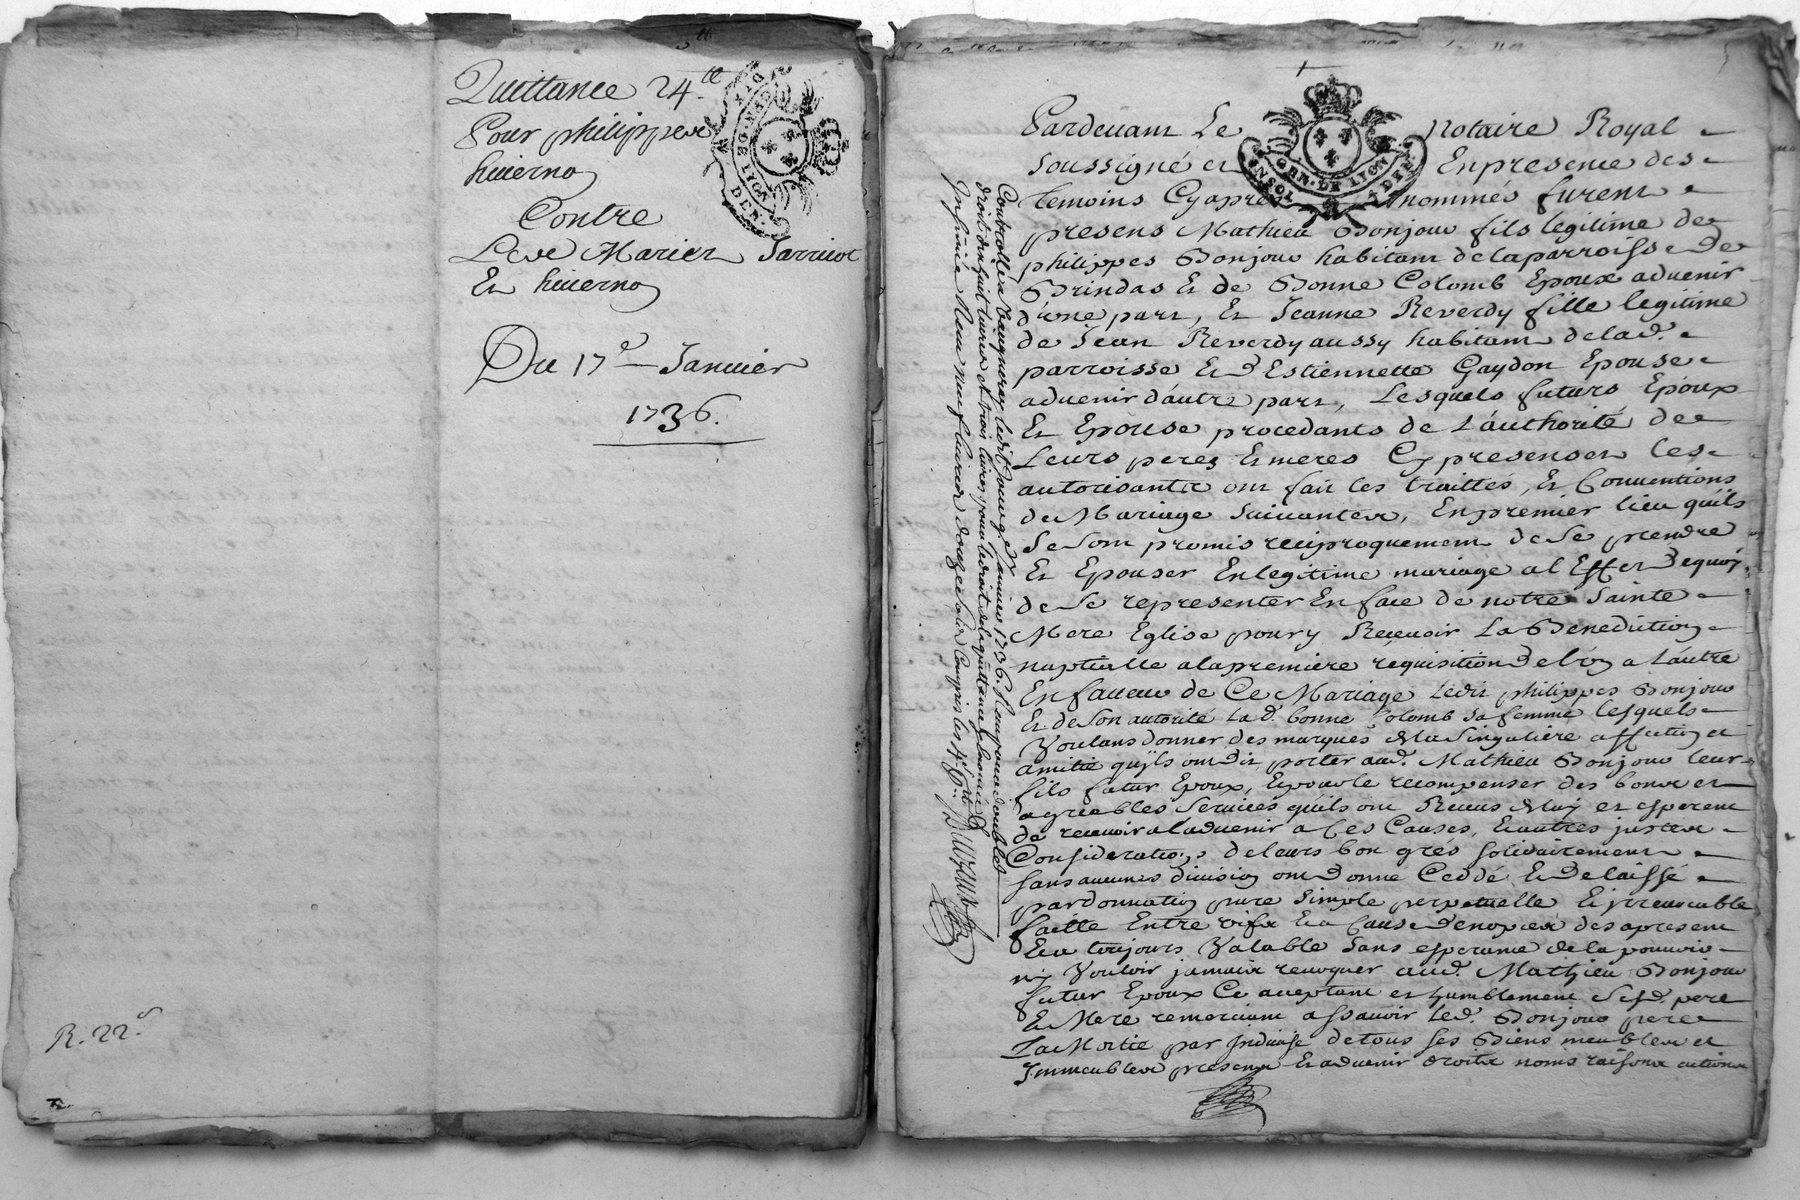 Quittance 24ᵗᵗ
Pour philippe
hiverno
Contre
Marier Sarricot
Et hiverno
Du 17ᵉ Janvier
1736.
R. 22.
GEN. DE LYON
Pardevant Le notaire Royal
soussigné et En presence des
temoins Cyapres nommés furent
presens Mathieu Bonjour fils legitime de
philippes Bonjour habitant de la parroisse de
Brindas Et de Bonne Colomb Epoux advenir
d'une part, Et Jeanne Reverdy fille legitime
de Jean Reverdy aussy habitant de lad.
parroisse Et d'Estiennette Gaydon Epouse
advenir d'autre part, Lesquels futurs Epoux
Et Epouse procedants de L'authorité de
Leurs peres Et meres Cy presens et les
autorisants ont fait les traittés, Et Conventions
de Mariage suivantes, En premier lieu quils
se sont promis reciproquement de se prendre
Et Epouser En legitime mariage a l'Effet dequoy
de se representer En face de notre Sainte
Mere Eglise pour y Recevoir La Benediction
nuptialle a la premiere requisition de l'un a L'autre
En faveur de Ce Mariage Ledit philippes Bonjour
Et de son autorité lad. bonne Colomb sa femme lesquels
Voulans donner des marques de la singuliere affection et
amitié quils ont dit porter aud. Mathieu Bonjour leur
fils futur Epoux, Et pour le recompenser des bons et
agreables services quils ont Receus de luy et esperent
de recevoir a l'advenir a Ces Causes, Et autres justes
Considerations de leurs bon grés solidairement
sans aucune division ont donné Ceddé Et delaissé
par donnation pure simple perpetuelle Et irrevocable
faitte Entre vifs Et a Cause de nopces des a present
Et a toujours Valable sans esperance de la pouvoir
ny Vouloir jamais revoquer aud. Mathieu Bonjour
futur Epoux Ce acceptant et humblement sesd. pere
Et Mere remerciant a sçavoir led. Bonjour pere
La Moitié par indivise de tous ses Biens meubles et
Immeubles presens Et advenir droits noms raisons actions
Controllé a Vaugneray ledit jour 17 Janvier 1736. Receu pour doubles
droit